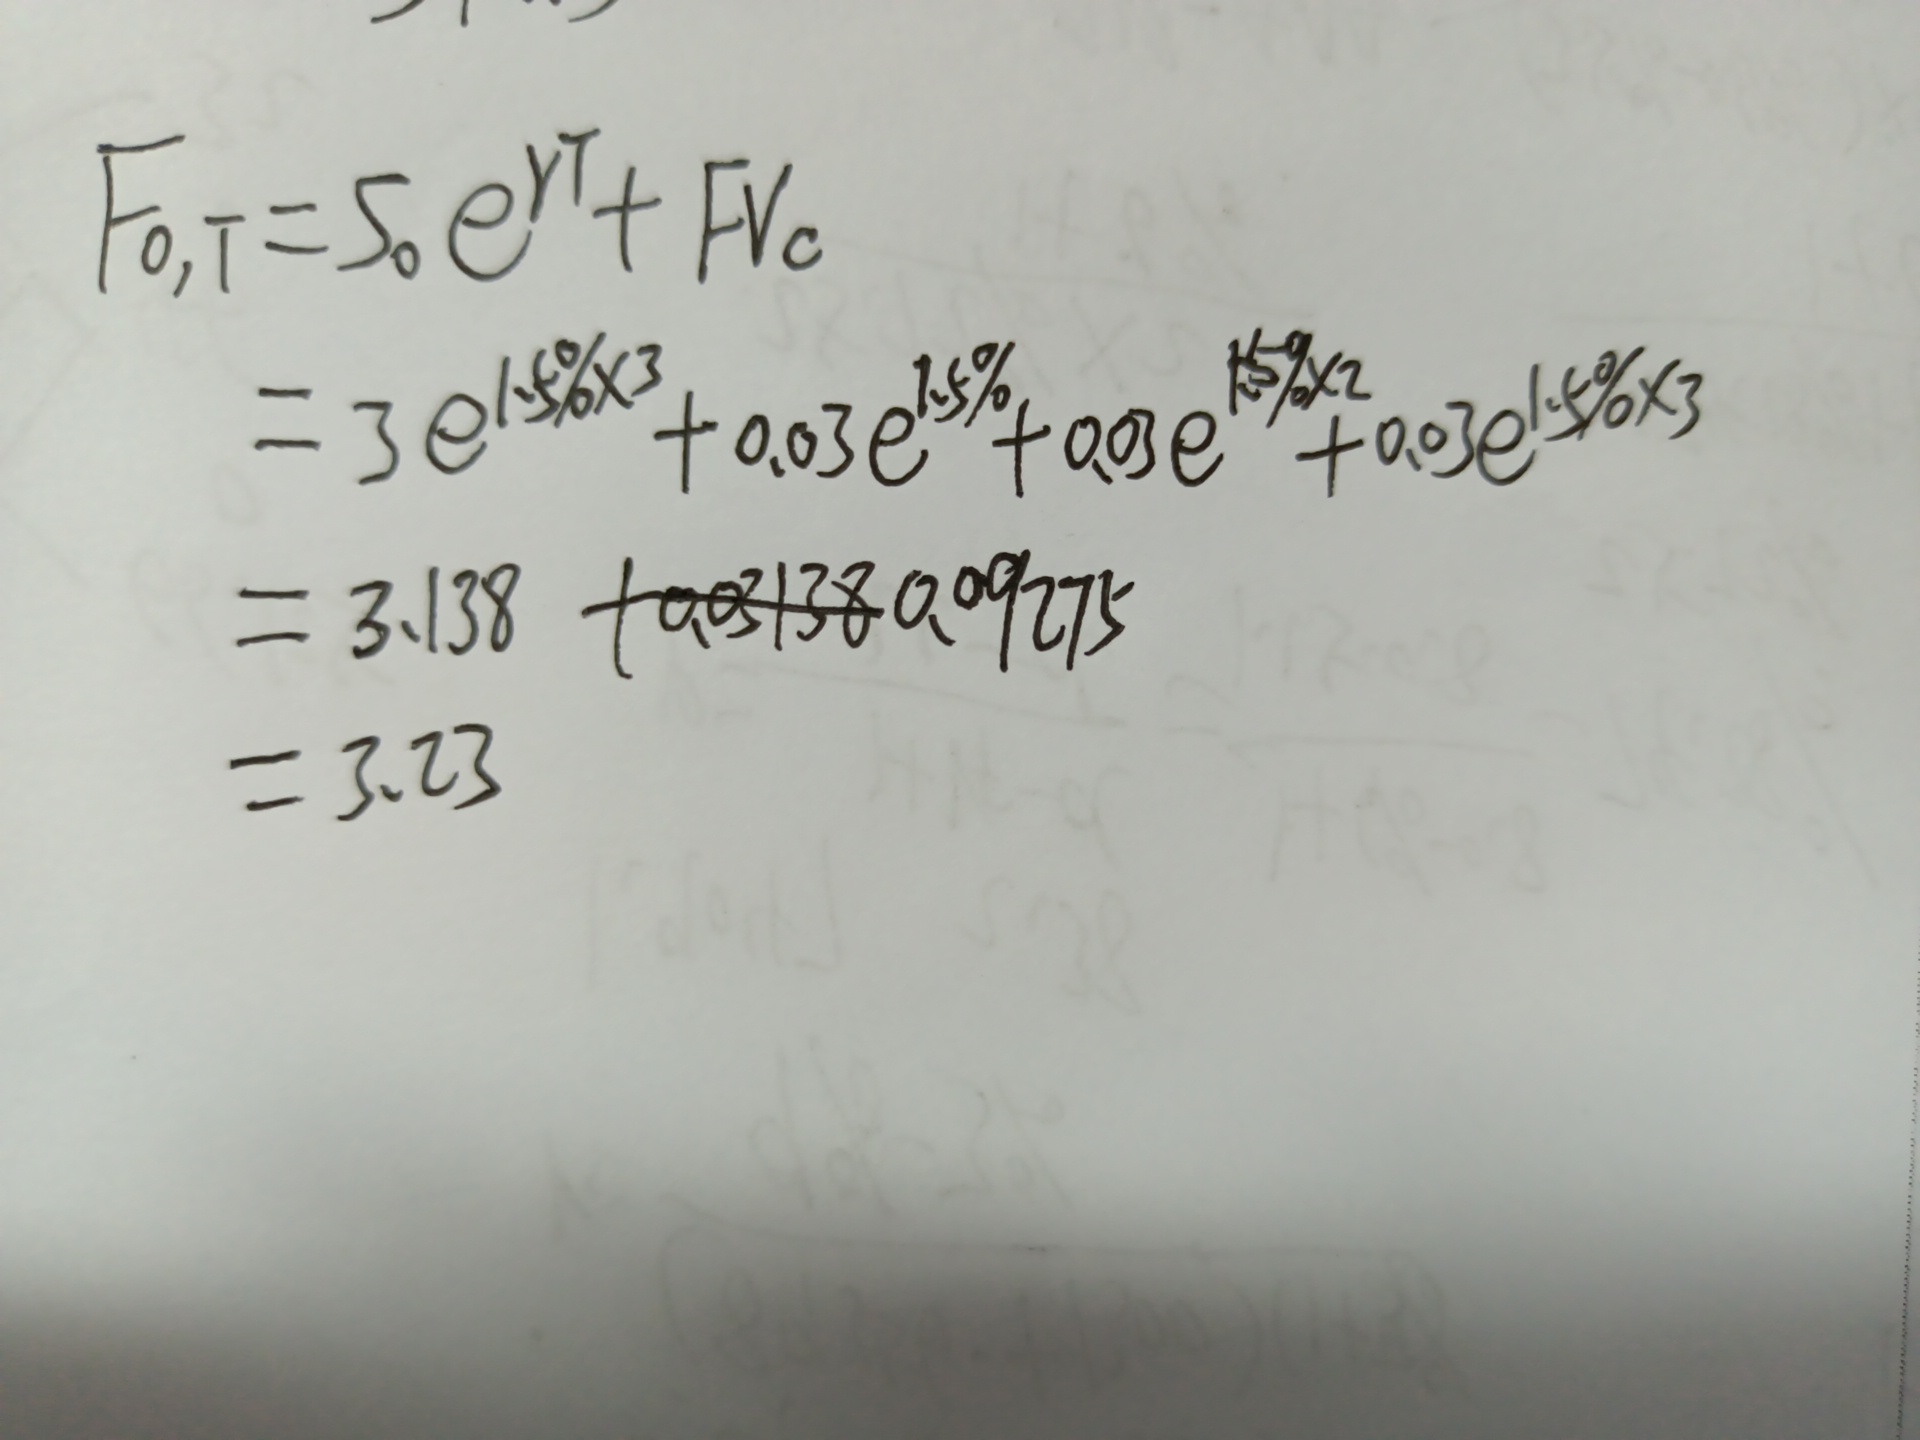 F₀,T = S₀ e^rT + FVc
= 3 e^1.5%×3 + 0.03 e^1.5% + 0.03 e^1.5%×2 + 0.03 e^1.5%×3
= 3.138 + 0.09275
= 3.23